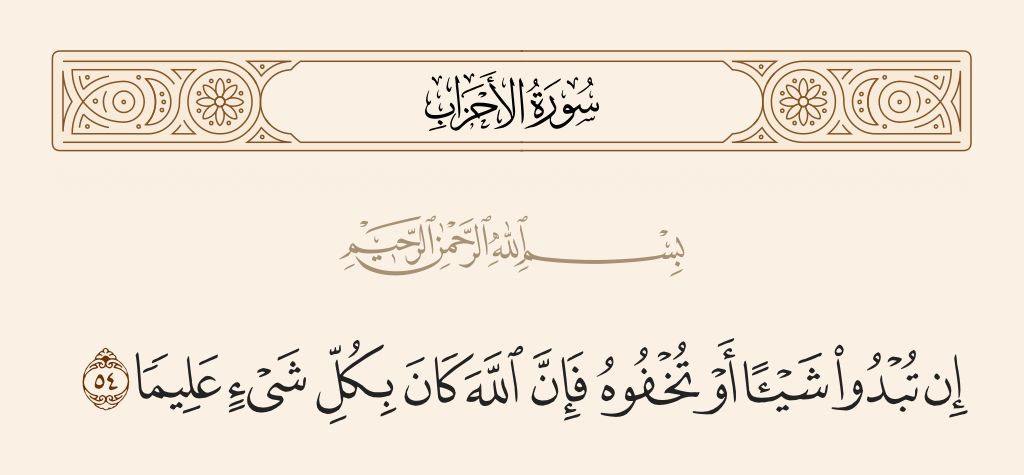 سُورَةُ الأَحْزَابِ
بِسْمِ ٱللَّهِ ٱلرَّحْمَٰنِ ٱلرَّحِيمِ
إِن تُبْدُوا۟ شَيْـًٔا أَوْ تُخْفُوهُ فَإِنَّ ٱللَّهَ كَانَ بِكُلِّ شَىْءٍ عَلِيمًا ٥٤